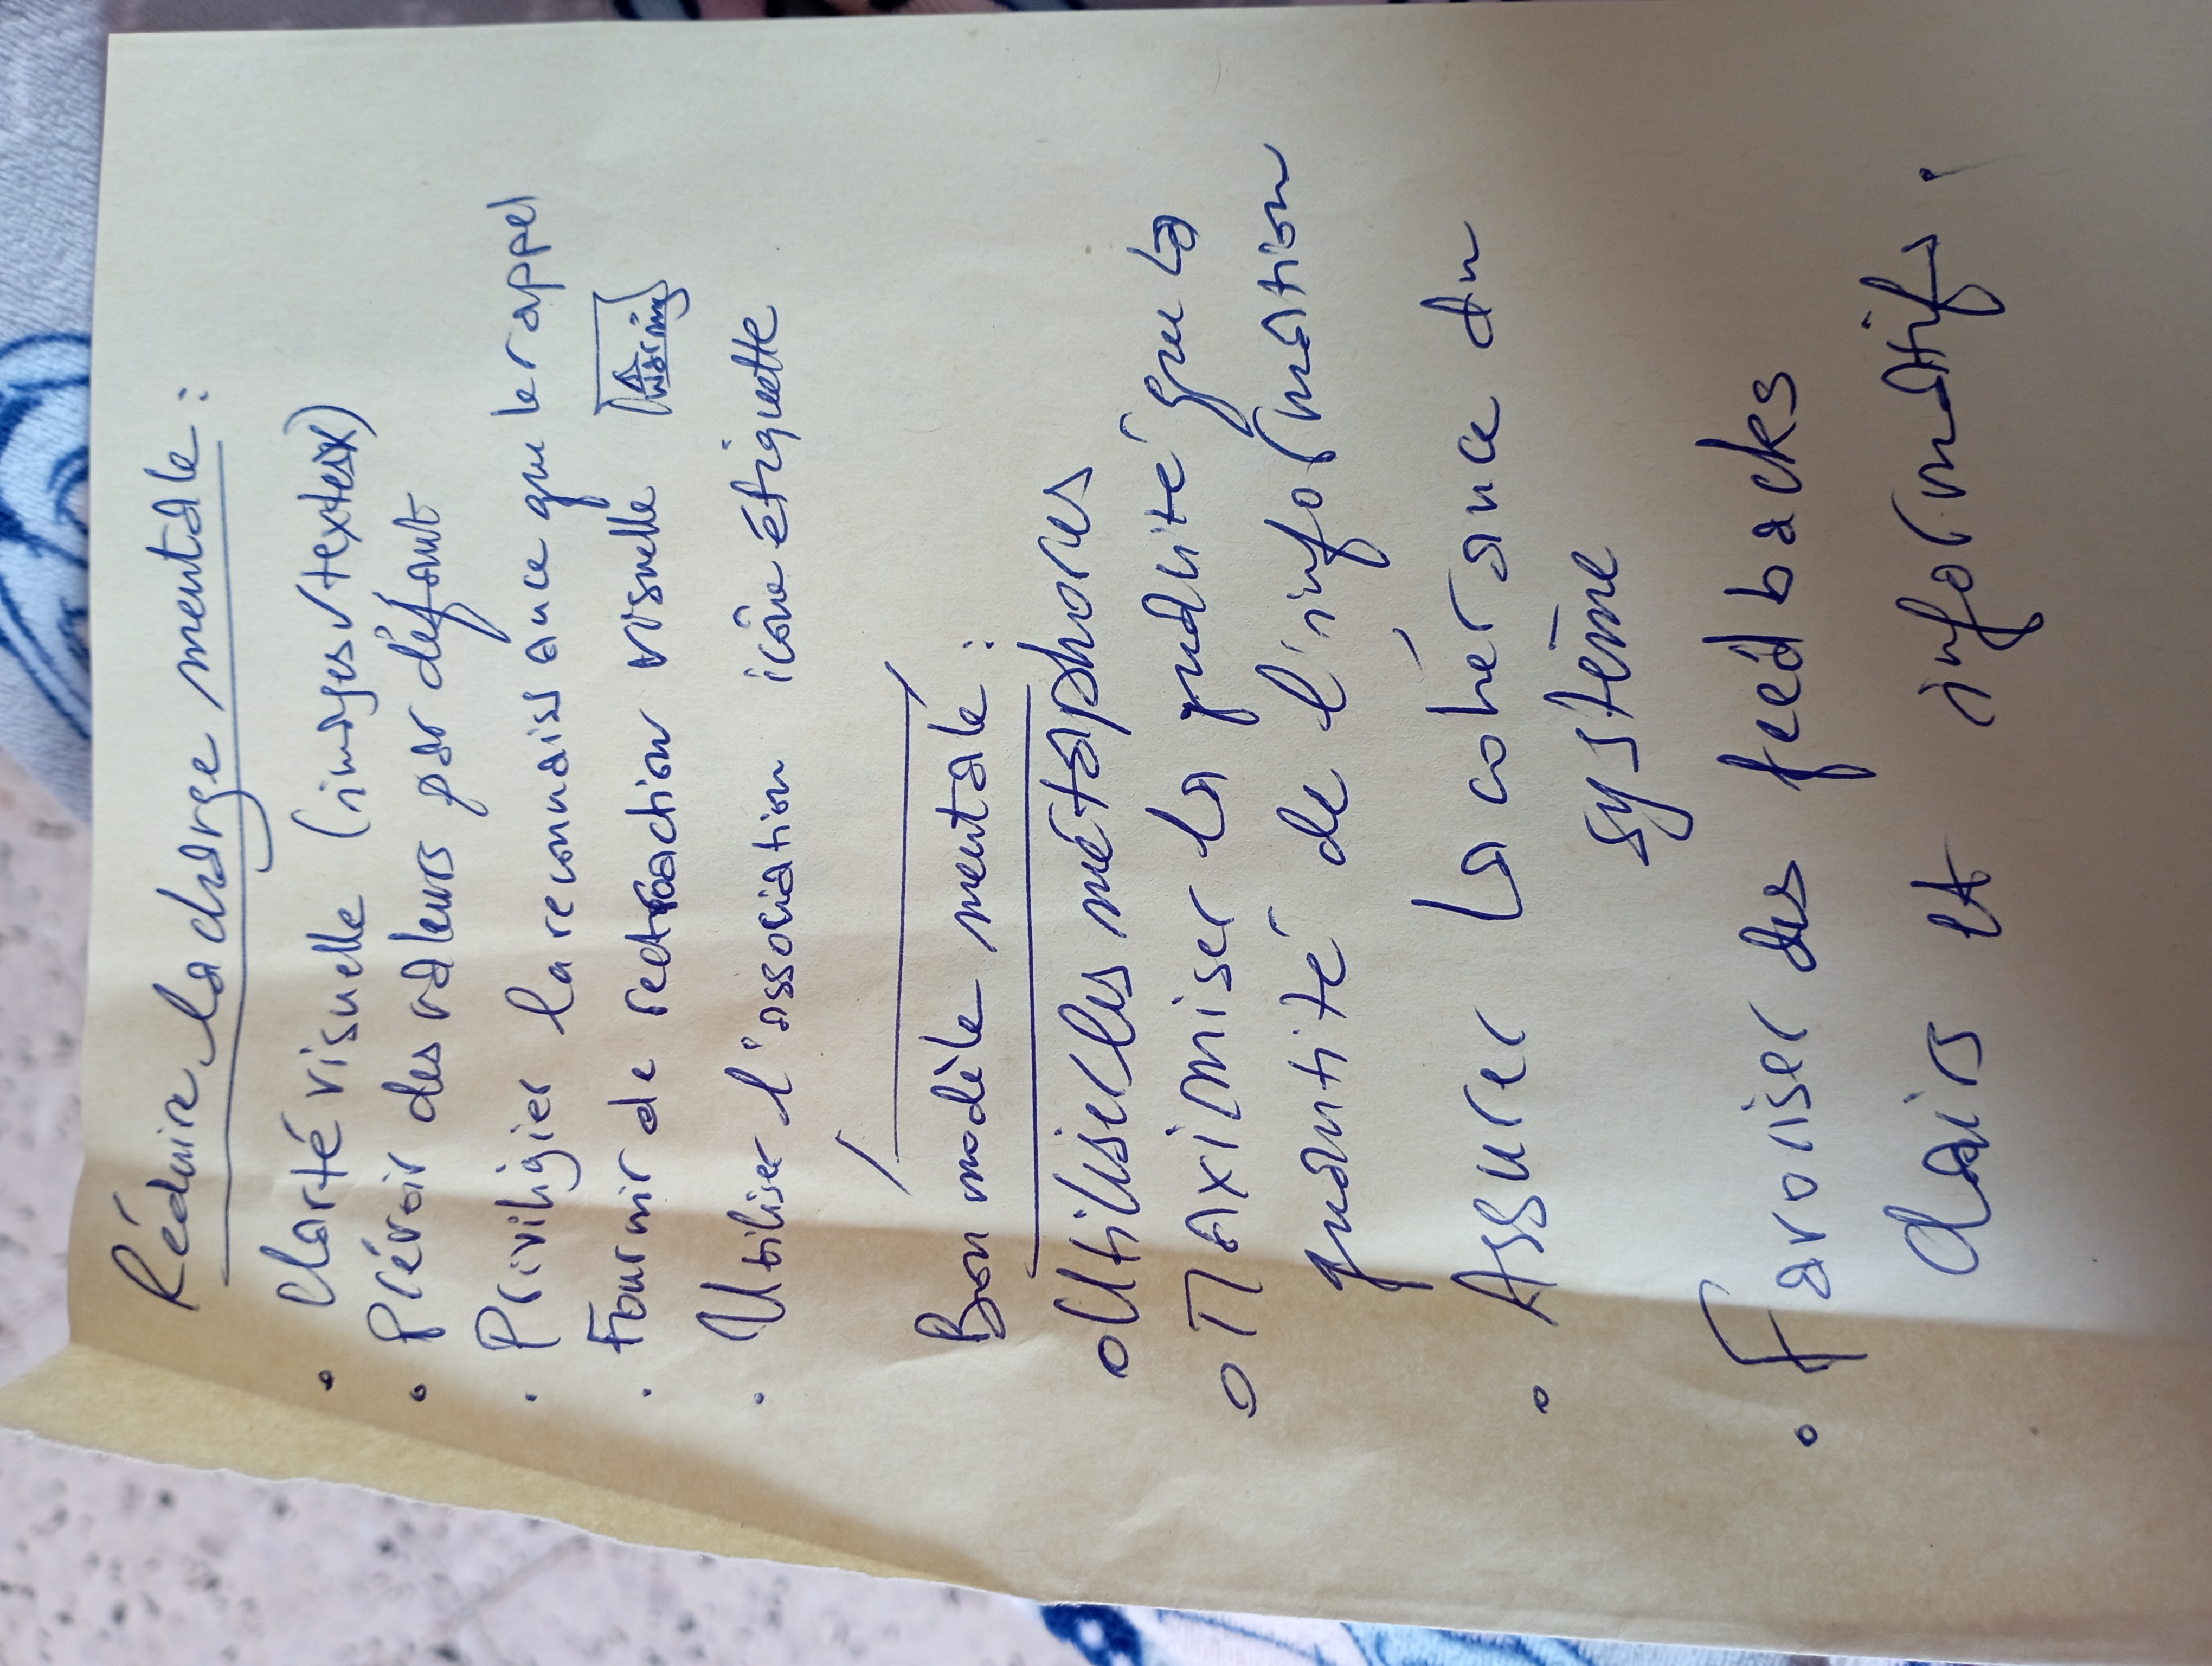 Réduire la charge mentale :
• Clarté visuelle (images √ textes X)
• Prévoir des valeurs par défaut
• Priviligier la reconnaissance que le rappel
• Fournir de rectroaction visuelle Warning
• Utiliser l'association icône étiquette
Bon modèle mentale :
• Utiliser les métaphores
• Maximiser la qualité que la
quantité de l'information
• Assurer la cohérance du
système
• Favoriser des feedbacks
clairs et informatifs.